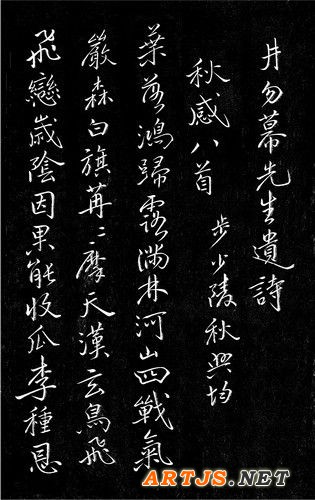 井勿幕先生遺詩
秋感八首 步少陵秋興均
葉落鴻歸露滿林河山四戰氣
嚴森白旗苒〻摩天漢玄鳥飛
飛戀歲陰因果能收瓜李種恩
ARTJS.NET